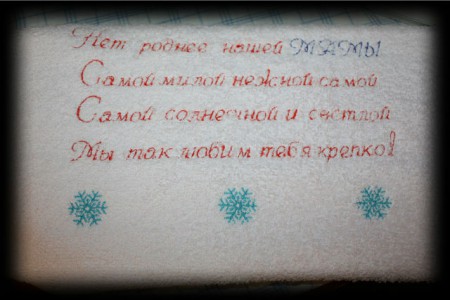 Нет роднее нашей МАМЫ
Самой милой нежной самой
Самой солнечной и светлой
Мы так любим тебя крепко!